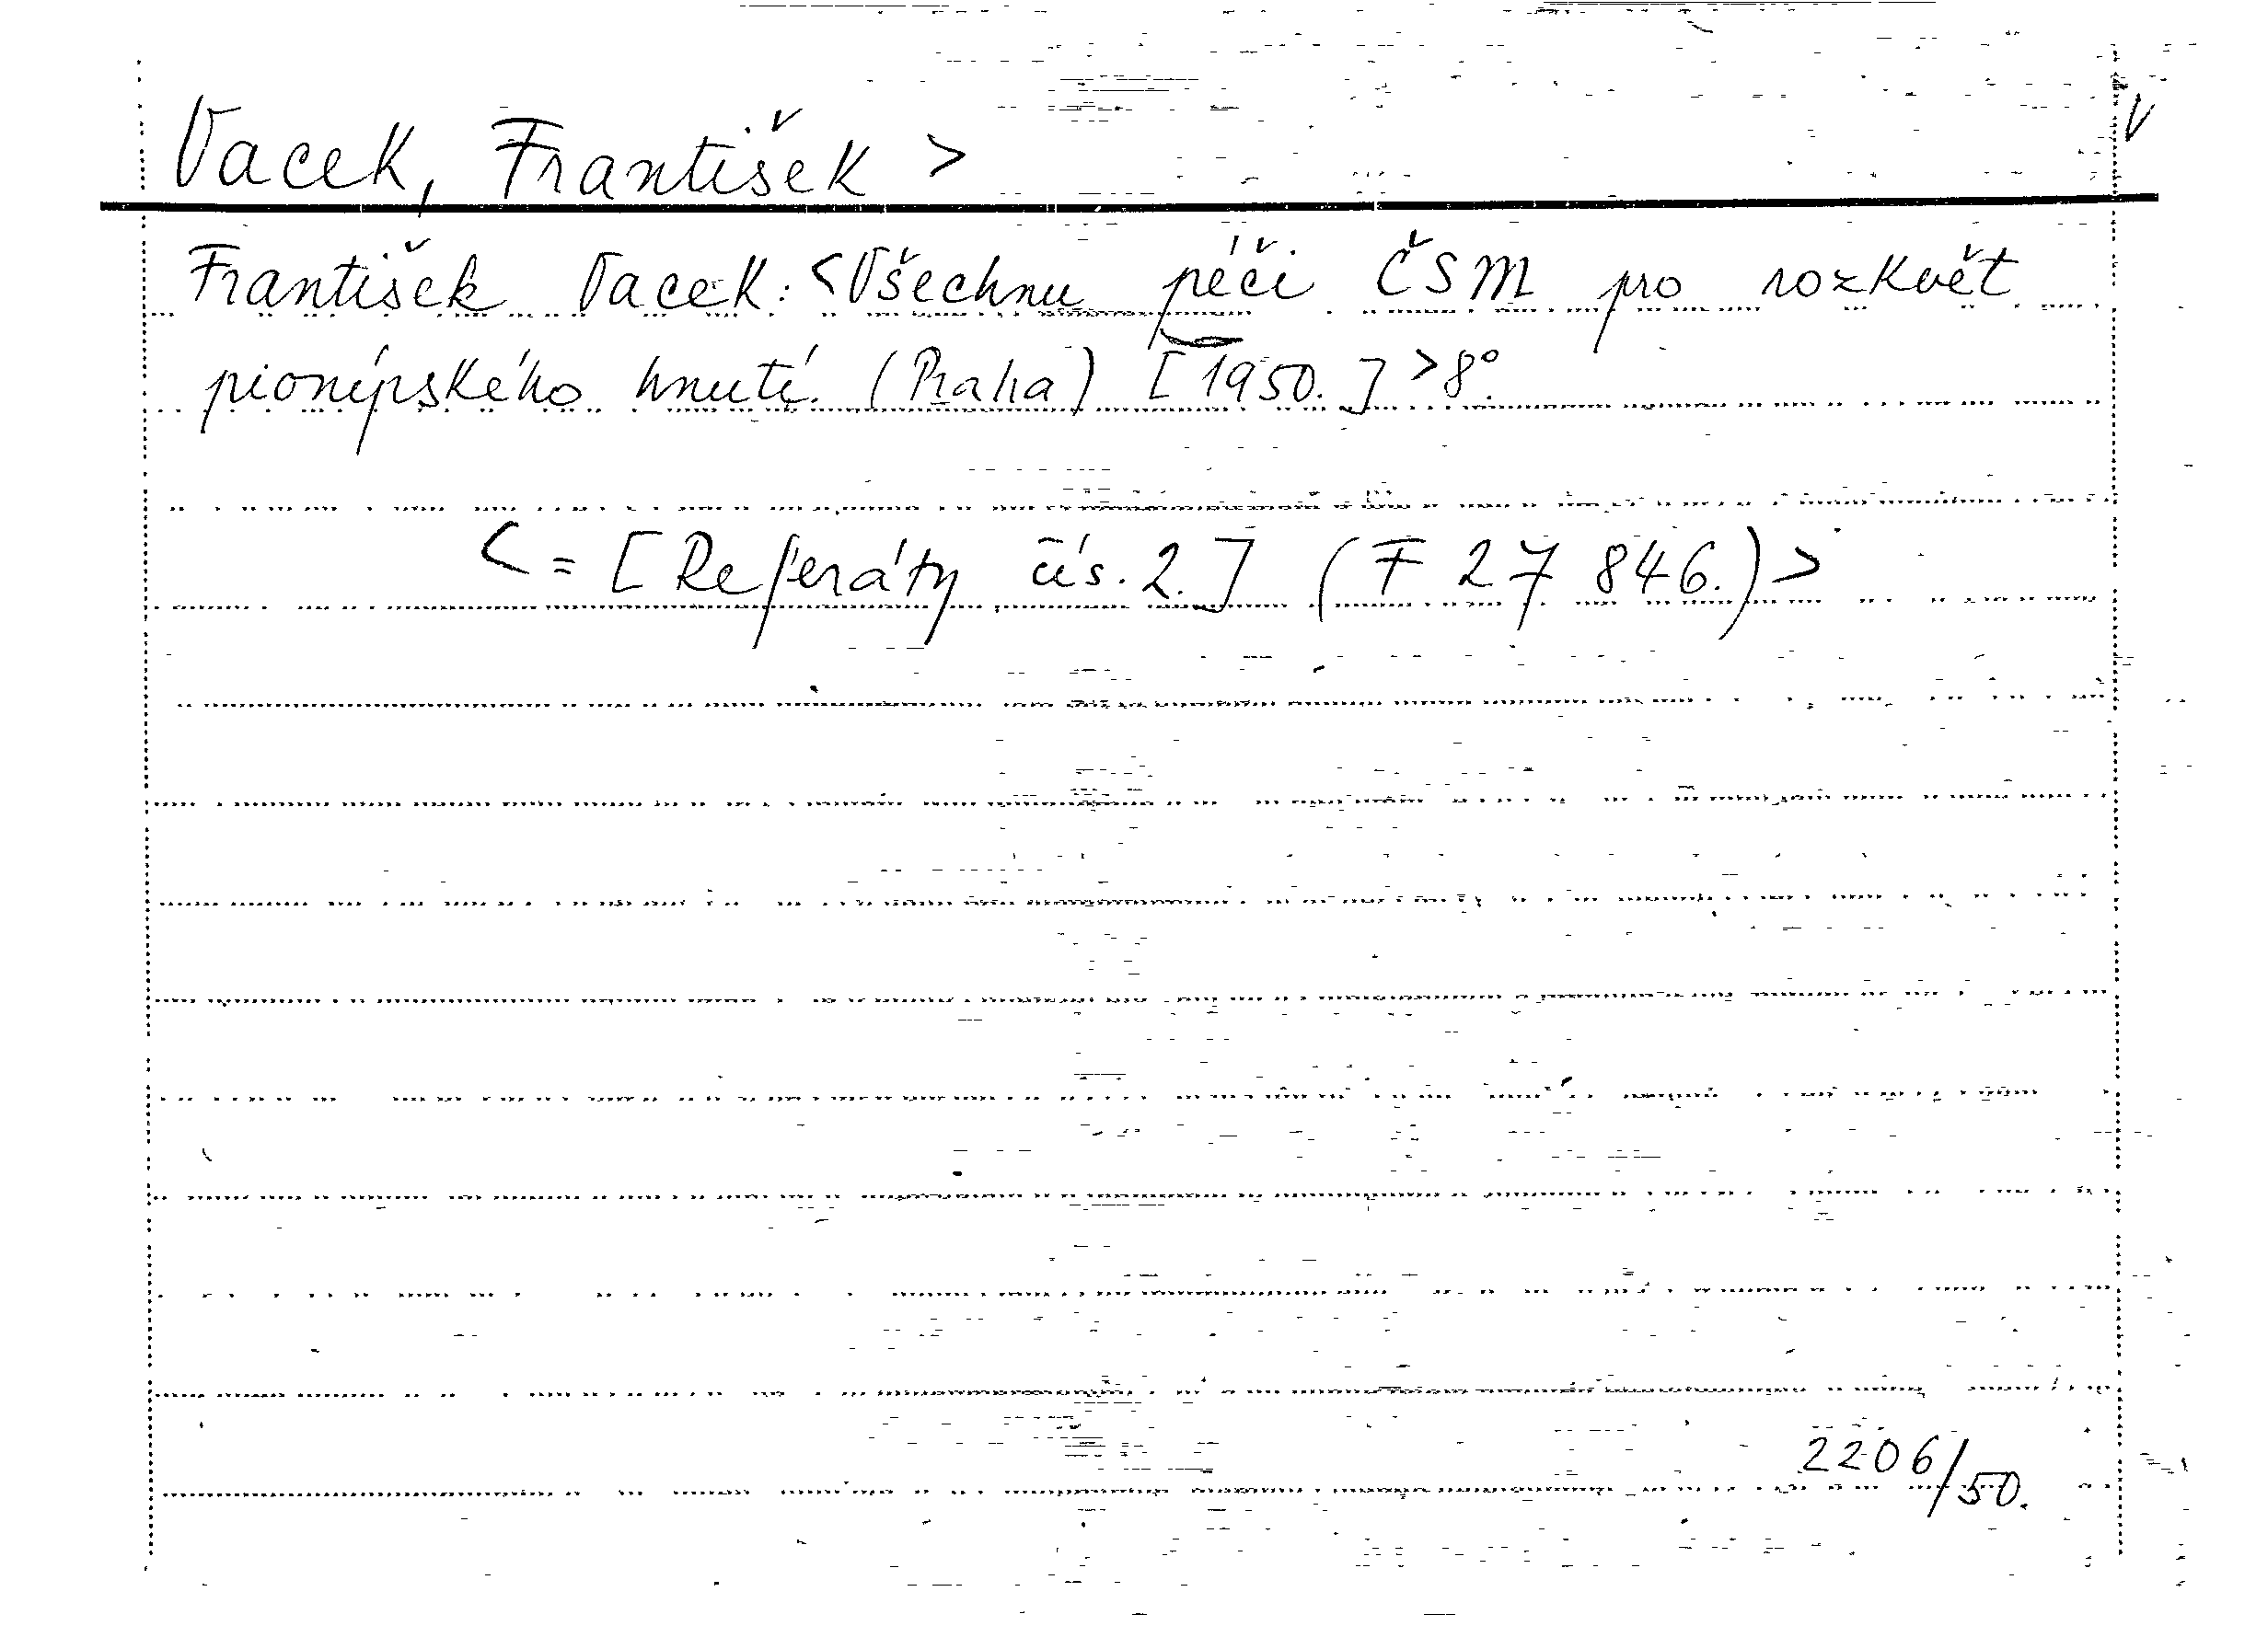 Vacek, František > V
František Vacek: <Všechnu péči ČSM pro rozkvět
pionýrského hnutí. (Praha) [1950.] > 8°.
< = [Referáty čís. 2.] (F 27 846.) >
2206/50.